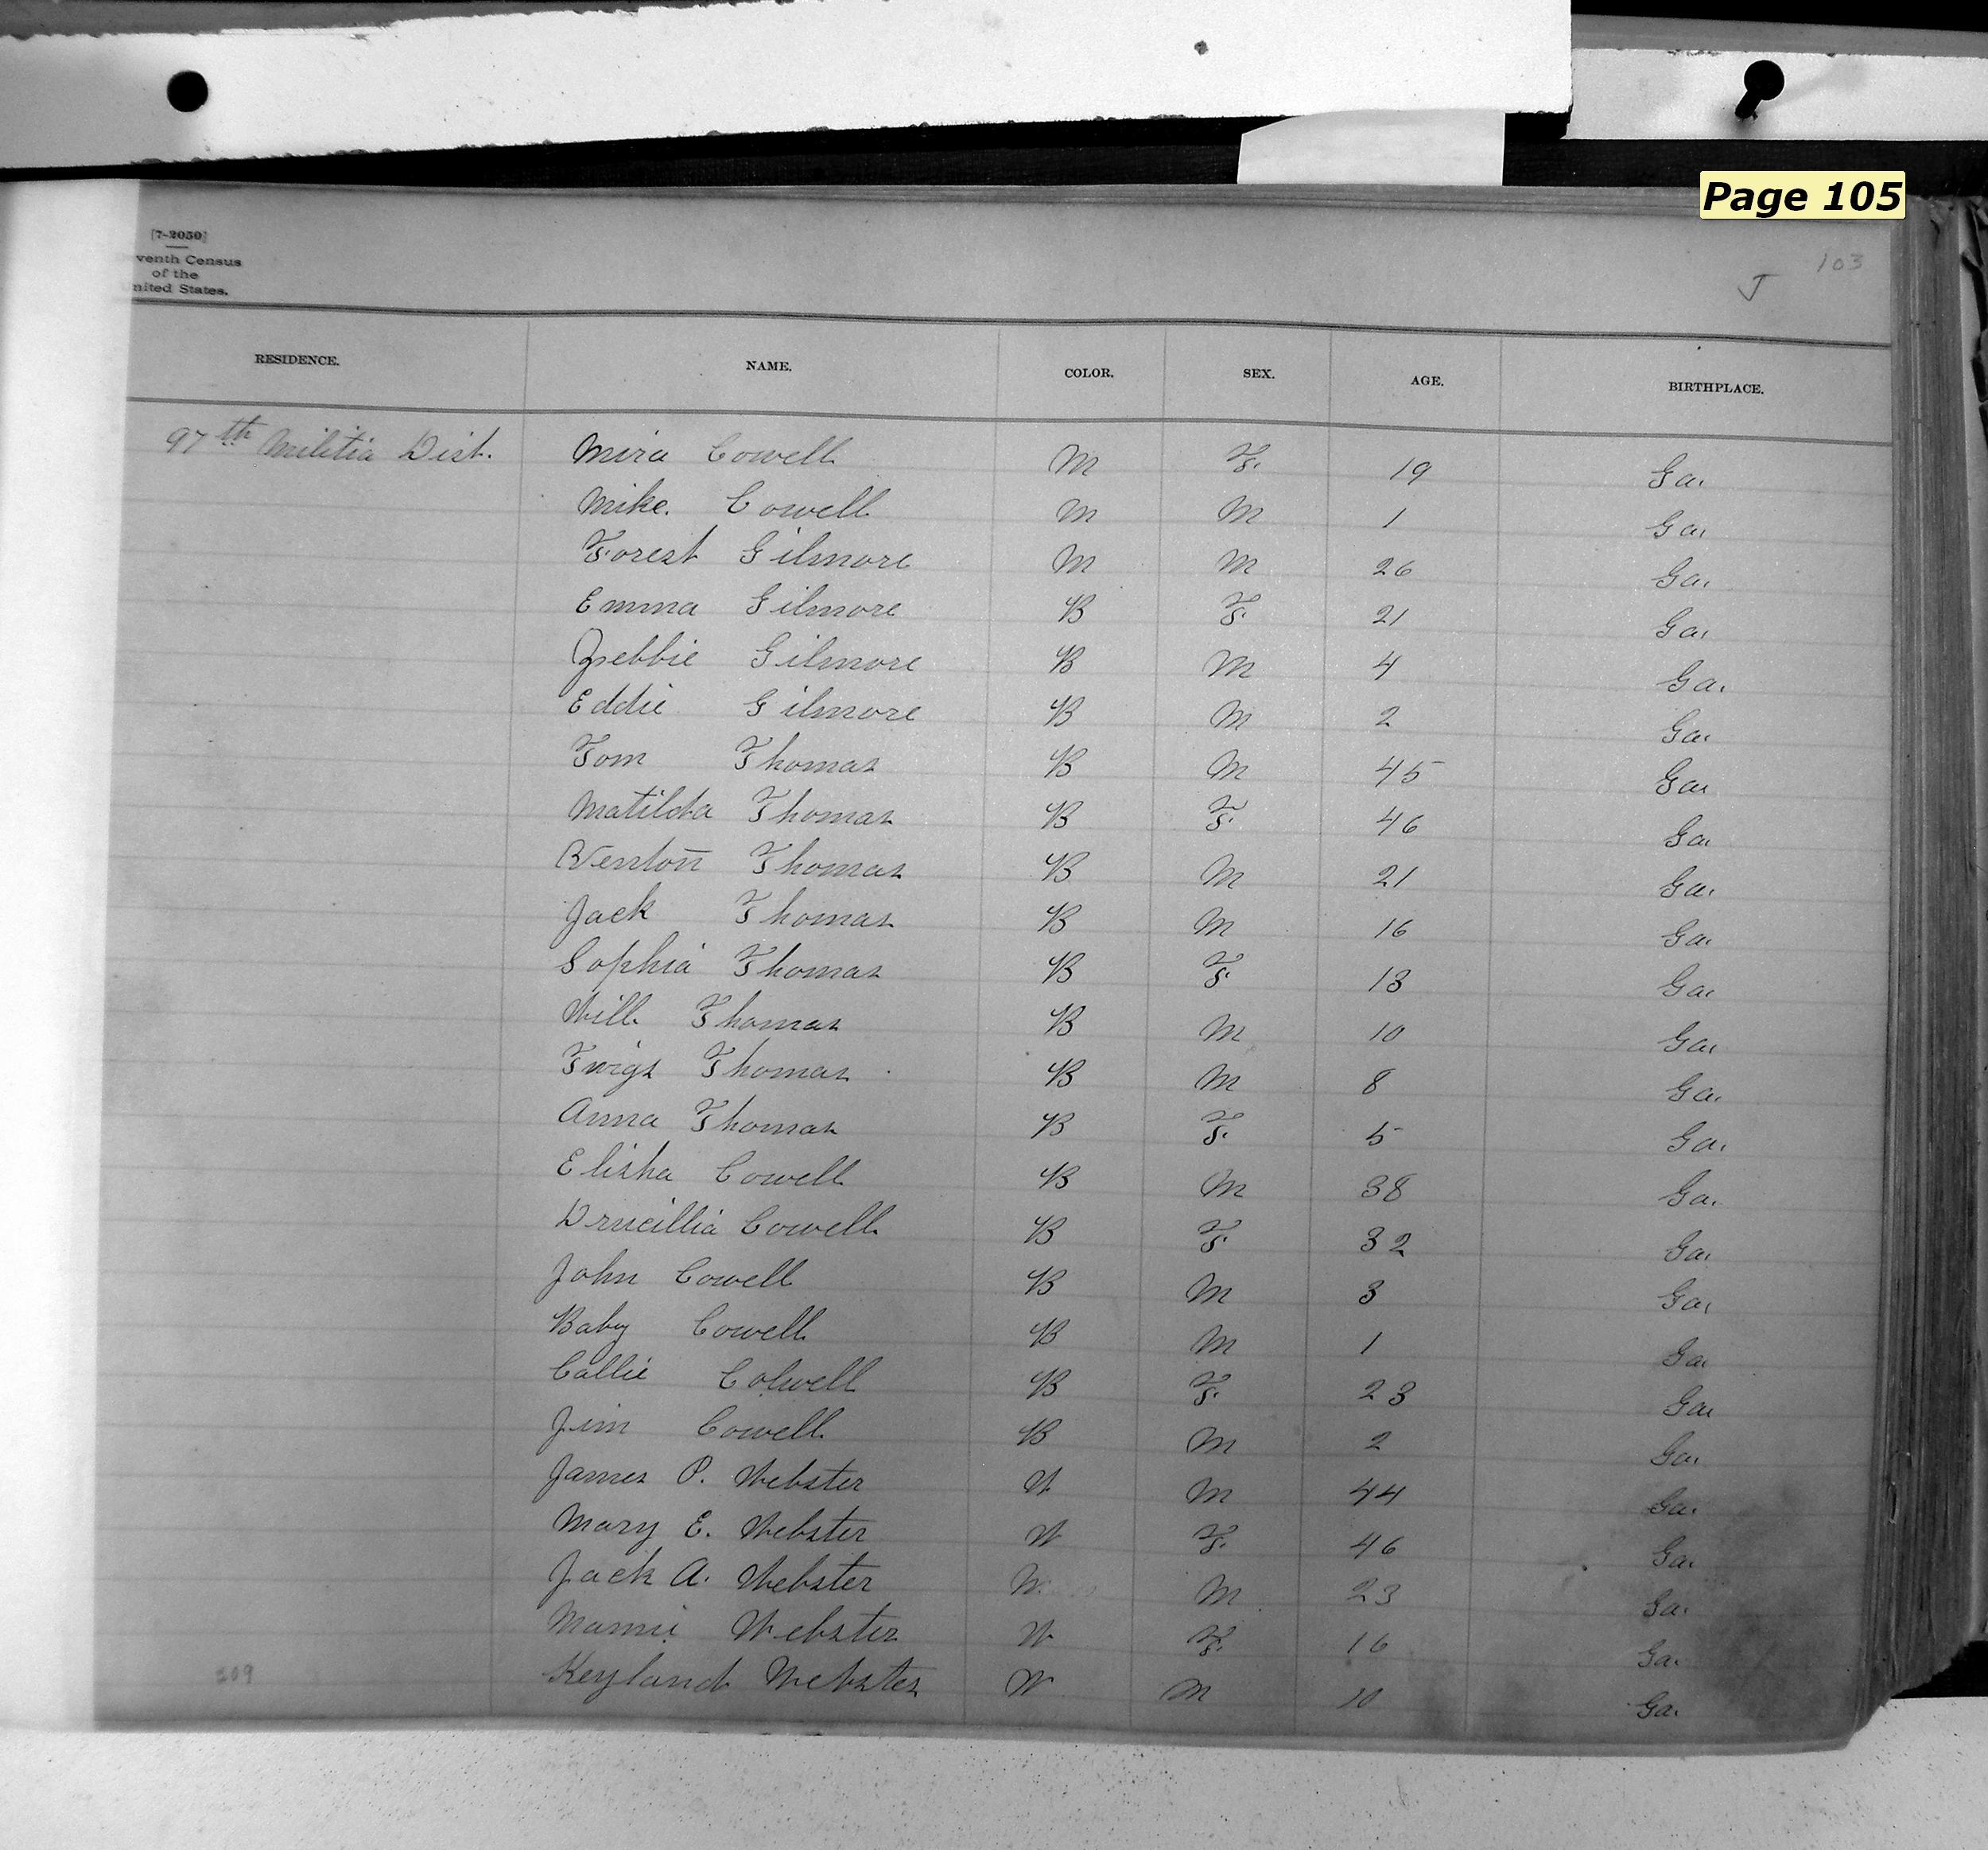 Page 105
[7-2050]
venth Census
of the
nited States.
103
J
RESIDENCE. NAME. COLOR. SEX. AGE. BIRTHPLACE.
97th Militia Dist. Mira Cowell M F. 19 Ga.
Mike. Cowell M M 1 Ga.
Forest Gilmore M M 26 Ga.
Emma Gilmore B F. 21 Ga.
Zebbie Gilmore B M 4 Ga.
Eddie Gilmore B M 2 Ga.
Tom Thomas B M 45 Ga.
Matilda Thomas B F. 46 Ga.
Benton Thomas B M 21 Ga.
Jack Thomas B M 16 Ga.
Sophia Thomas B F. 13 Ga.
Will Thomas B M 10 Ga.
Twigs Thomas B M 8 Ga.
Anna Thomas B F. 5 Ga.
Elisha Cowell B M 38 Ga.
Drucillia Cowell B F. 32 Ga.
John Cowell B M 3 Ga.
Baby Cowell B M 1 Ga.
Callie Colwell B F. 23 Ga.
Jim Cowell B M 2 Ga.
James P. Webster W M 44 Ga.
Mary E. Webster W F. 46 Ga.
Jack A. Webster W M 23 Ga.
Mamie Webster W F. 16 Ga.
Keyland Webster W M 10 Ga.
209